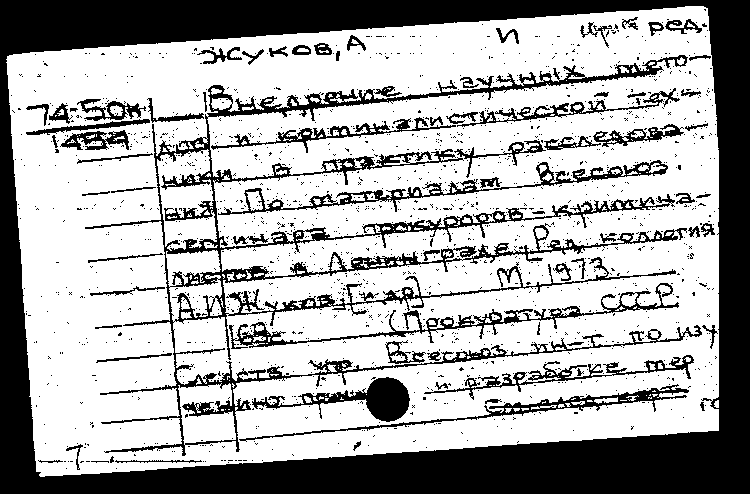 Жуков, А И ред.
74-50к Внедрение научных мето-
1484 дов и криминалистической тех-
ники в практику расследова-
ния. По материалам Всесоюз.
семинара прокуроров-кримина-
листов в Ленинграде. Ред. коллегия
А.И Жуков [и др] М., 1973.
168с (Прокуратура СССР.
Следств. упр. Всесоюз. ин-т по изу
чению и разработке мер
См. след. карт
7